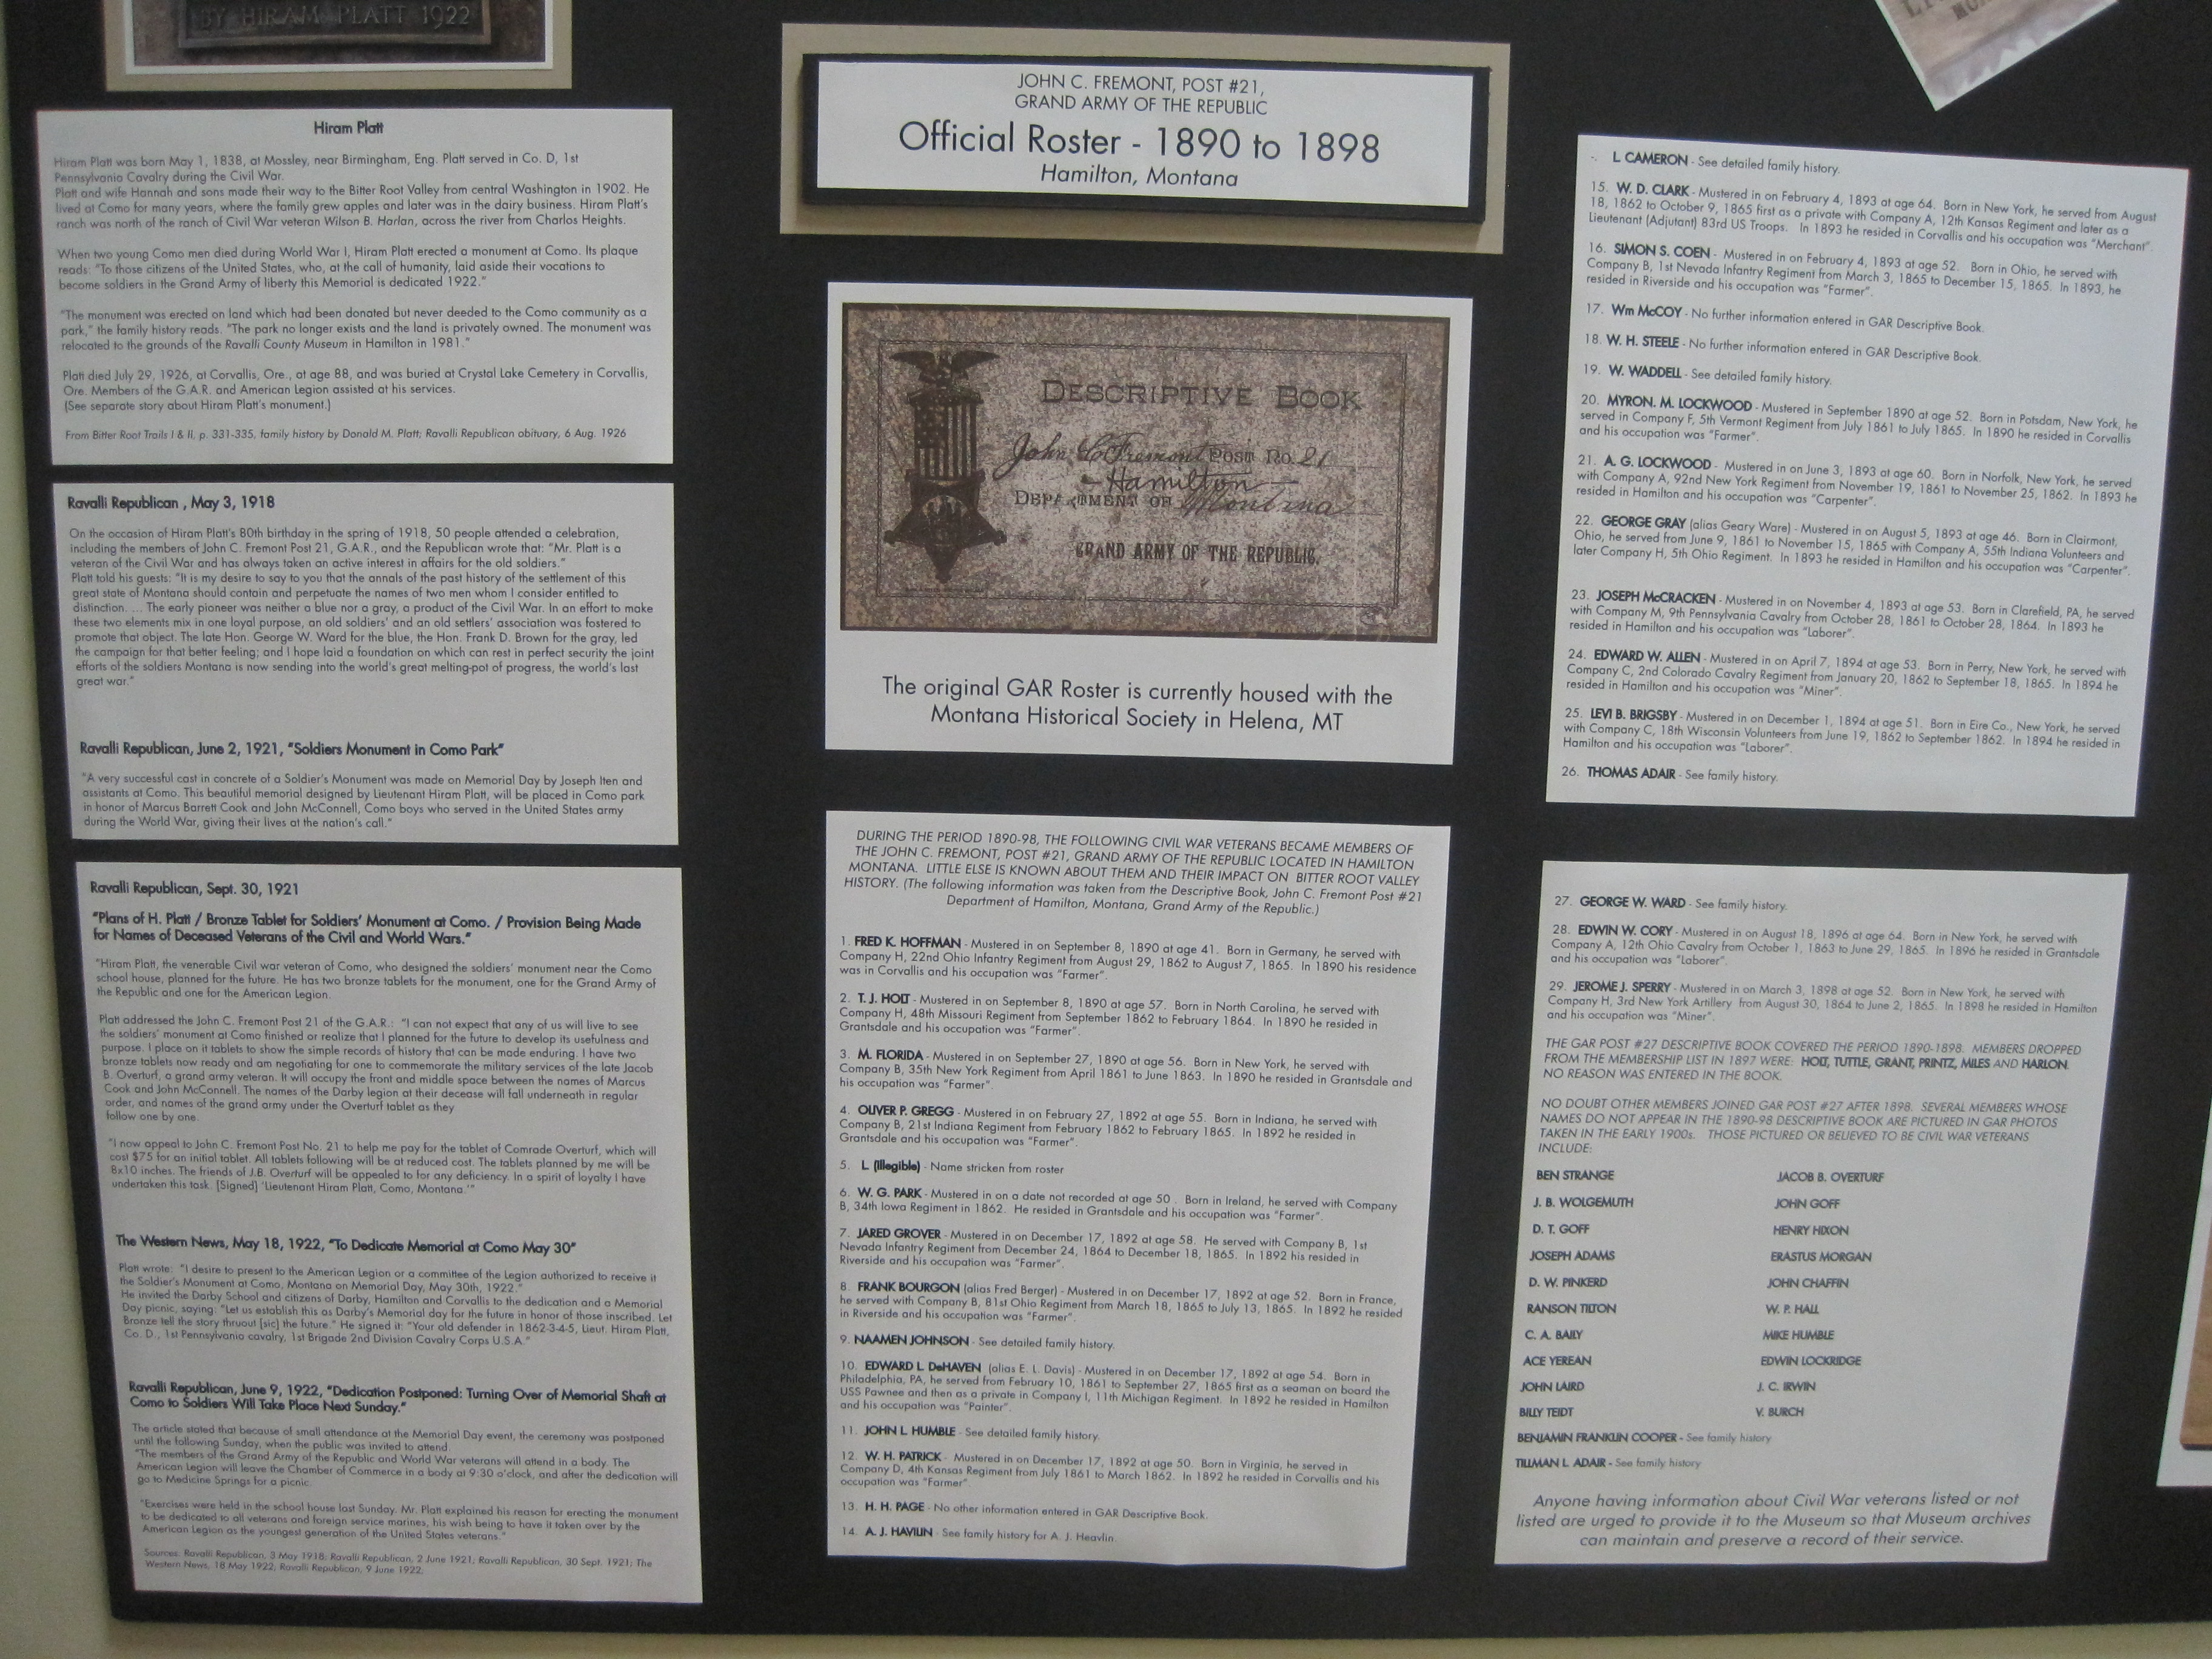 BY HIRAM PLATT 1922
Hiram Platt
Hiram Platt was born May 1, 1838, at Mossley, near Birmingham, Eng. Platt served in Co. D, 1st
Pennsylvania Cavalry during the Civil War.
Platt and wife Hannah and sons made their way to the Bitter Root Valley from central Washington in 1902. He
lived at Como for many years, where the family grew apples and later was in the dairy business. Hiram Platt's
ranch was north of the ranch of Civil War veteran Wilson B. Harlan, across the river from Charlos Heights.
When two young Como men died during World War I, Hiram Platt erected a monument at Como. Its plaque
reads: "To those citizens of the United States, who, at the call of humanity, laid aside their vocations to
become soldiers in the Grand Army of liberty this Memorial is dedicated 1922."
"The monument was erected on land which had been donated but never deeded to the Como community as a
park," the family history reads. "The park no longer exists and the land is privately owned. The monument was
relocated to the grounds of the Ravalli County Museum in Hamilton in 1981."
Platt died July 29, 1926, at Corvallis, Ore., at age 88, and was buried at Crystal Lake Cemetery in Corvallis,
Ore. Members of the G.A.R. and American Legion assisted at his services.
(See separate story about Hiram Platt's monument.)
From Bitter Root Trails I & II, p. 331-335, family history by Donald M. Platt; Ravalli Republican obituary, 6 Aug. 1926
Ravalli Republican , May 3, 1918
On the occasion of Hiram Platt's 80th birthday in the spring of 1918, 50 people attended a celebration,
including the members of John C. Fremont Post 21, G.A.R., and the Republican wrote that: "Mr. Platt is a
veteran of the Civil War and has always taken an active interest in affairs for the old soldiers."
Platt told his guests: "It is my desire to say to you that the annals of the past history of the settlement of this
great state of Montana should contain and perpetuate the names of two men whom I consider entitled to
distinction. ... The early pioneer was neither a blue nor a gray, a product of the Civil War. In an effort to make
these two elements mix in one loyal purpose, an old soldiers' and an old settlers' association was fostered to
promote that object. The late Hon. George W. Ward for the blue, the Hon. Frank D. Brown for the gray, led
the campaign for that better feeling; and I hope laid a foundation on which can rest in perfect security the joint
efforts of the soldiers Montana is now sending into the world's great melting-pot of progress, the world's last
great war."
Ravalli Republican, June 2, 1921, "Soldiers Monument in Como Park"
"A very successful cast in concrete of a Soldier's Monument was made on Memorial Day by Joseph Iten and
assistants at Como. This beautiful memorial designed by Lieutenant Hiram Platt, will be placed in Como park
in honor of Marcus Barrett Cook and John McConnell, Como boys who served in the United States army
during the World War, giving their lives at the nation's call."
Ravalli Republican, Sept. 30, 1921
"Plans of H. Platt / Bronze Tablet for Soldiers' Monument at Como. / Provision Being Made
for Names of Deceased Veterans of the Civil and World Wars."
"Hiram Platt, the venerable Civil war veteran of Como, who designed the soldiers' monument near the Como
school house, planned for the future. He has two bronze tablets for the monument, one for the Grand Army of
the Republic and one for the American Legion.
Platt addressed the John C. Fremont Post 21 of the G.A.R.: "I can not expect that any of us will live to see
the soldiers' monument at Como finished or realize that I planned for the future to develop its usefulness and
purpose. I place on it tablets to show the simple records of history that can be made enduring. I have two
bronze tablets now ready and am negotiating for one to commemorate the military services of the late Jacob
B. Overturf, a grand army veteran. It will occupy the front and middle space between the names of Marcus
Cook and John McConnell. The names of the Darby legion at their decease will fall underneath in regular
order, and names of the grand army under the Overturf tablet as they
follow one by one.
"I now appeal to John C. Fremont Post No. 21 to help me pay for the tablet of Comrade Overturf, which will
cost $75 for an initial tablet. All tablets following will be at reduced cost. The tablets planned by me will be
8x10 inches. The friends of J.B. Overturf will be appealed to for any deficiency. In a spirit of loyalty I have
undertaken this task. [Signed] 'Lieutenant Hiram Platt, Como, Montana.'"
The Western News, May 18, 1922, "To Dedicate Memorial at Como May 30"
Platt wrote: "I desire to present to the American Legion or a committee of the Legion authorized to receive it
the Soldier's Monument at Como, Montana on Memorial Day, May 30th, 1922."
He invited the Darby School and citizens of Darby, Hamilton and Corvallis to the dedication and a Memorial
Day picnic, saying: "Let us establish this as Darby's Memorial day for the future in honor of those inscribed. Let
Bronze tell the story thruout [sic] the future." He signed it: "Your old defender in 1862-3-4-5, Lieut. Hiram Platt,
Co. D., 1st Pennsylvania cavalry, 1st Brigade 2nd Division Cavalry Corps U.S.A."
Ravalli Republican, June 9, 1922, "Dedication Postponed: Turning Over of Memorial Shaft at
Como to Soldiers Will Take Place Next Sunday."
The article stated that because of small attendance at the Memorial Day event, the ceremony was postponed
until the following Sunday, when the public was invited to attend.
"The members of the Grand Army of the Republic and World War veterans will attend in a body. The
American Legion will leave the Chamber of Commerce in a body at 9:30 o'clock, and after the dedication will
go to Medicine Springs for a picnic.
"Exercises were held in the school house last Sunday. Mr. Platt explained his reason for erecting the monument
to be dedicated to all veterans and foreign service marines, his wish being to have it taken over by the
American Legion as the youngest generation of the United States veterans."
Sources: Ravalli Republican, 3 May 1918; Ravalli Republican, 2 June 1921; Ravalli Republican, 30 Sept. 1921; The
Western News, 18 May 1922; Ravalli Republican, 9 June 1922.
JOHN C. FREMONT, POST #21,
GRAND ARMY OF THE REPUBLIC
Official Roster - 1890 to 1898
Hamilton, Montana
DESCRIPTIVE BOOK
John C Fremont Post No. 21
Hamilton
DEPARTMENT OF Montana
GRAND ARMY OF THE REPUBLIC.
The original GAR Roster is currently housed with the
Montana Historical Society in Helena, MT
DURING THE PERIOD 1890-98, THE FOLLOWING CIVIL WAR VETERANS BECAME MEMBERS OF
THE JOHN C. FREMONT, POST #21, GRAND ARMY OF THE REPUBLIC LOCATED IN HAMILTON
MONTANA. LITTLE ELSE IS KNOWN ABOUT THEM AND THEIR IMPACT ON BITTER ROOT VALLEY
HISTORY. (The following information was taken from the Descriptive Book, John C. Fremont Post #21
Department of Hamilton, Montana, Grand Army of the Republic.)
1. FRED K. HOFFMAN - Mustered in on September 8, 1890 at age 41. Born in Germany, he served with
Company H, 22nd Ohio Infantry Regiment from August 29, 1862 to August 7, 1865. In 1890 his residence
was in Corvallis and his occupation was "Farmer".
2. T. J. HOLT - Mustered in on September 8, 1890 at age 57. Born in North Carolina, he served with
Company H, 48th Missouri Regiment from September 1862 to February 1864. In 1890 he resided in
Grantsdale and his occupation was "Farmer".
3. M. FLORIDA - Mustered in on September 27, 1890 at age 56. Born in New York, he served with
Company B, 35th New York Regiment from April 1861 to June 1863. In 1890 he resided in Grantsdale and
his occupation was "Farmer".
4. OLIVER P. GREGG - Mustered in on February 27, 1892 at age 55. Born in Indiana, he served with
Company B, 21st Indiana Regiment from February 1862 to February 1865. In 1892 he resided in
Grantsdale and his occupation was "Farmer".
5. L (Illegible) - Name stricken from roster
6. W. G. PARK - Mustered in on a date not recorded at age 50 . Born in Ireland, he served with Company
B, 34th Iowa Regiment in 1862. He resided in Grantsdale and his occupation was "Farmer".
7. JARED GROVER - Mustered in on December 17, 1892 at age 58. He served with Company B, 1st
Nevada Infantry Regiment from December 24, 1864 to December 18, 1865. In 1892 his resided in
Riverside and his occupation was "Farmer".
8. FRANK BOURGON (alias Fred Berger) - Mustered in on December 17, 1892 at age 52. Born in France,
he served with Company B, 81st Ohio Regiment from March 18, 1865 to July 13, 1865. In 1892 he resided
in Riverside and his occupation was "Farmer".
9. NAAMEN JOHNSON - See detailed family history.
10. EDWARD L. DeHAVEN (alias E. L. Davis) - Mustered in on December 17, 1892 at age 54. Born in
Philadelphia, PA, he served from February 10, 1861 to September 27, 1865 first as a seaman on board the
USS Pawnee and then as a private in Company I, 11th Michigan Regiment. In 1892 he resided in Hamilton
and his occupation was "Painter".
11. JOHN L. HUMBLE - See detailed family history.
12. W. H. PATRICK - Mustered in on December 17, 1892 at age 50. Born in Virginia, he served in
Company D, 4th Kansas Regiment from July 1861 to March 1862. In 1892 he resided in Corvallis and his
occupation was "Farmer".
13. H. H. PAGE - No other information entered in GAR Descriptive Book.
14. A. J. HAVILIN - See family history for A. J. Heavlin.
L CAMERON - See detailed family history.
15. W. D. CLARK - Mustered in on February 4, 1893 at age 64. Born in New York, he served from August
18, 1862 to October 9, 1865 first as a private with Company A, 12th Kansas Regiment and later as a
Lieutenant (Adjutant) 83rd US Troops. In 1893 he resided in Corvallis and his occupation was "Merchant".
16. SIMON S. COEN - Mustered in on February 4, 1893 at age 52. Born in Ohio, he served with
Company B, 1st Nevada Infantry Regiment from March 3, 1865 to December 15, 1865. In 1893, he
resided in Riverside and his occupation was "Farmer".
17. Wm McCOY - No further information entered in GAR Descriptive Book.
18. W. H. STEELE - No further information entered in GAR Descriptive Book.
19. W. WADDELL - See detailed family history.
20. MYRON. M. LOCKWOOD - Mustered in September 1890 at age 52. Born in Potsdam, New York, he
served in Company F, 5th Vermont Regiment from July 1861 to July 1865. In 1890 he resided in Corvallis
and his occupation was "Farmer".
21. A. G. LOCKWOOD - Mustered in on June 3, 1893 at age 60. Born in Norfolk, New York, he served
with Company A, 92nd New York Regiment from November 19, 1861 to November 25, 1862. In 1893 he
resided in Hamilton and his occupation was "Carpenter".
22. GEORGE GRAY (alias Geary Ware) - Mustered in on August 5, 1893 at age 46. Born in Clairmont,
Ohio, he served from June 9, 1861 to November 15, 1865 with Company A, 55th Indiana Volunteers and
later Company H, 5th Ohio Regiment. In 1893 he resided in Hamilton and his occupation was "Carpenter".
23. JOSEPH McCRACKEN - Mustered in on November 4, 1893 at age 53. Born in Clarefield, PA, he served
with Company M, 9th Pennsylvania Cavalry from October 28, 1861 to October 28, 1864. In 1893 he
resided in Hamilton and his occupation was "Laborer".
24. EDWARD W. ALLEN - Mustered in on April 7, 1894 at age 53. Born in Perry, New York, he served with
Company C, 2nd Colorado Cavalry Regiment from January 20, 1862 to September 18, 1865. In 1894 he
resided in Hamilton and his occupation was "Miner".
25. LEVI B. BRIGSBY - Mustered in on December 1, 1894 at age 51. Born in Eire Co., New York, he served
with Company C, 18th Wisconsin Volunteers from June 19, 1862 to September 1862. In 1894 he resided in
Hamilton and his occupation was "Laborer".
26. THOMAS ADAIR - See family history.
27. GEORGE W. WARD - See family history.
28. EDWIN W. CORY - Mustered in on August 18, 1896 at age 64. Born in New York, he served with
Company A, 12th Ohio Cavalry from October 1, 1863 to June 29, 1865. In 1896 he resided in Grantsdale
and his occupation was "Laborer".
29. JEROME J. SPERRY - Mustered in on March 3, 1898 at age 52. Born in New York, he served with
Company H, 3rd New York Artillery from August 30, 1864 to June 2, 1865. In 1898 he resided in Hamilton
and his occupation was "Miner".
THE GAR POST #27 DESCRIPTIVE BOOK COVERED THE PERIOD 1890-1898. MEMBERS DROPPED
FROM THE MEMBERSHIP LIST IN 1897 WERE: HOLT, TUTTLE, GRANT, PRINTZ, MILES AND HARLON.
NO REASON WAS ENTERED IN THE BOOK.
NO DOUBT OTHER MEMBERS JOINED GAR POST #27 AFTER 1898. SEVERAL MEMBERS WHOSE
NAMES DO NOT APPEAR IN THE 1890-98 DESCRIPTIVE BOOK ARE PICTURED IN GAR PHOTOS
TAKEN IN THE EARLY 1900s. THOSE PICTURED OR BELIEVED TO BE CIVIL WAR VETERANS
INCLUDE:
BEN STRANGE JACOB B. OVERTURF
J. B. WOLGEMUTH JOHN GOFF
D. T. GOFF HENRY HIXON
JOSEPH ADAMS ERASTUS MORGAN
D. W. PINKERD JOHN CHAFFIN
RANSON TILTON W. P. HALL
C. A. BAILY MIKE HUMBLE
ACE YEREAN EDWIN LOCKRIDGE
JOHN LAIRD J. C. IRWIN
BILLY TEIDT V. BURCH
BENJAMIN FRANKLIN COOPER - See family history
TILLMAN L. ADAIR - See family history
Anyone having information about Civil War veterans listed or not
listed are urged to provide it to the Museum so that Museum archives
can maintain and preserve a record of their service.